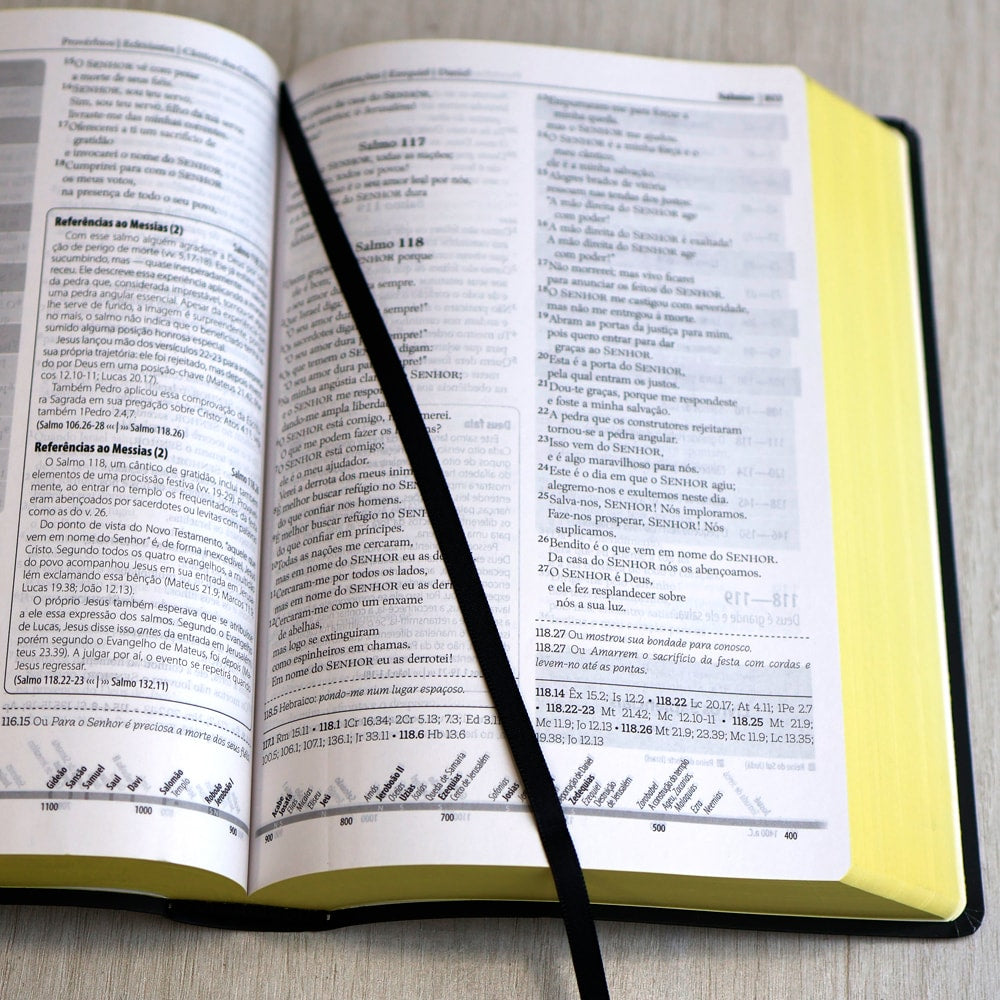 Provérbios | Eclesiastes | Cântico dos
15O SENHOR vê com pesar
a morte de seus fiéis.
16SENHOR, sou teu servo,
Sim, sou teu servo, filho da tua serva;
livraste-me das minhas correntes.
17Oferecerei a ti um sacrifício de
gratidão
e invocarei o nome do SENHOR.
18Cumprirei para com o SENHOR
os meus votos,
na presença de todo o seu povo,
Referências ao Messias (2)
Com esse salmo alguém agradece a Deus por
ção de perigo de morte (vv. 5,17-18). Ele já
sucumbindo, mas — quase inesperadamente
receu. Ele descreve essa experiência aplicando a
da pedra que, considerada imprestável,
uma pedra angular essencial. Apesar da experiência
lhe serve de fundo, a imagem é surpreendente.
no mais, o salmo não indica que o beneficiado
sumido alguma posição honrosa especial.
Jesus lançou mão dos versículos 22-23 para
sua própria trajetória: ele foi rejeitado, mas depois
do por Deus em uma posição-chave (Mateus 21.42;
cos 12.10-11; Lucas 20.17).
Também Pedro aplicou essa comprovação da
ra Sagrada em sua pregação sobre Cristo: Atos 4.11;
também 1Pedro 2.4,7.
(Salmo 106.26-28 ‹‹‹ | ››› Salmo 118.26)
Referências ao Messias (2)
O Salmo 118, um cântico de gratidão, inclui também
elementos de uma procissão festiva (vv. 19-29).
mente, ao entrar no templo os frequentadores da
eram abençoados por sacerdotes ou levitas com palavras
como as do v. 26.
Do ponto de vista do Novo Testamento, "aquele que
vem em nome do Senhor" é, de forma inexcedível,
Cristo. Segundo todos os quatro evangelhos, a multidão
do povo acompanhou Jesus em sua entrada em
lém exclamando essa bênção (Mateus 21.9; Marcos 11.9;
Lucas 19.38; João 12.13).
O próprio Jesus também esperava que se
a ele essa expressão dos salmos. Segundo o Evangelho
de Lucas, Jesus disse isso antes da entrada em Jerusalém,
porém segundo o Evangelho de Mateus, foi depois
teus 23.39). A julgar por aí, o evento se repetirá quando
Jesus regressar.
(Salmo 118.22-23 ‹‹‹ | ››› Salmo 132.11)
116.15 Ou Para o Senhor é preciosa a morte dos seus fiéis.
Gideão
Sansão
Samuel
Saul
Davi
Salomão
Templo
Roboão/
Jeroboão I
1100
1000
900
Lamentações | Ezequiel | Daniel
da casa do SENHOR,
Jerusalém!
Salmo 117
SENHOR, todas as nações;
todos os povos!
é o seu amor leal por nós,
SENHOR dura
Salmo 118
SENHOR porque
ele é bom,
seu amor dura sempre.
Que Israel diga:
"O seu amor dura sempre!"
Os sacerdotes digam:
"O seu amor dura sempre!"
Os que temem o SENHOR digam:
"O seu amor dura para sempre!"
Na minha angústia clamei ao SENHOR;
e o SENHOR me respondeu,
dando-me ampla liberdade.
O SENHOR está comigo, não temerei.
O que me podem fazer os homens?
O SENHOR está comigo;
ele é o meu ajudador.
Verei a derrota dos meus inimigos.
É melhor buscar refúgio no SENHOR
do que confiar nos homens.
É melhor buscar refúgio no SENHOR
do que confiar em príncipes.
Todas as nações me cercaram,
mas em nome do SENHOR eu as derrotei.
Cercaram-me por todos os lados,
mas em nome do SENHOR eu as derrotei.
Cercaram-me como um enxame
de abelhas,
mas logo se extinguiram
como espinheiros em chamas.
Em nome do SENHOR eu as derrotei!
118.5 Hebraico: pondo-me num lugar espaçoso.
117.1 Rm 15.11 • 118.1 1Cr 16.34; 2Cr 5.13; 7.3; Ed 3.11;
100.5; 106.1; 107.1; 136.1; Jr 33.11 • 118.6 Hb 13.6
Salmos
Empurraram-me para forçar a
minha queda,
mas o SENHOR me ajudou.
14O SENHOR é a minha força e o
meu cântico;
ele é a minha salvação.
15Alegres brados de vitória
ressoam nas tendas dos justos.
"A mão direita do SENHOR age
com poder!
16A mão direita do SENHOR é exaltada!
A mão direita do SENHOR age
com poder!"
17Não morrerei; mas vivo ficarei
para anunciar os feitos do SENHOR.
18O SENHOR me castigou com severidade,
mas não me entregou à morte.
19Abram as portas da justiça para mim,
pois quero entrar para dar
graças ao SENHOR.
20Esta é a porta do SENHOR,
pela qual entram os justos.
21Dou-te graças, porque me respondeste
e foste a minha salvação.
22A pedra que os construtores rejeitaram
tornou-se a pedra angular.
23Isso vem do SENHOR,
e é algo maravilhoso para nós.
24Este é o dia em que o SENHOR agiu;
alegremo-nos e exultemos neste dia.
25Salva-nos, SENHOR! Nós imploramos.
Faze-nos prosperar, SENHOR! Nós
suplicamos.
26Bendito é o que vem em nome do SENHOR.
Da casa do SENHOR nós os abençoamos.
27O SENHOR é Deus,
e ele fez resplandecer sobre
nós a sua luz.
118.27 Ou mostrou sua bondade para conosco.
118.27 Ou Amarrem o sacrifício da festa com cordas e
levem-no até as pontas.
118.14 Êx 15.2; Is 12.2 • 118.22 Lc 20.17; At 4.11; 1Pe 2.7
• 118.22-23 Mt 21.42; Mc 12.10-11 • 118.25 Mt 21.9;
Mc 11.9; Jo 12.13 • 118.26 Mt 21.9; 23.39; Mc 11.9; Lc 13.35;
19.38; Jo 12.13
Acabe
Josafá
Elias
Micaías
Eliseu
Jeú
Amós
Jeroboão II
Oseias
Uzias
Isaías
Queda de Samaria
Ezequias
Cerco de Jerusalém
Sofonias
Josias
Coração de Daniel
Zedequias
Ezequiel
Destruição
de Jerusalém
Zorobabel
A construção do templo
Ageu, Zacarias
Malaquias
Ezra
Neemias
900
800
700
500
400